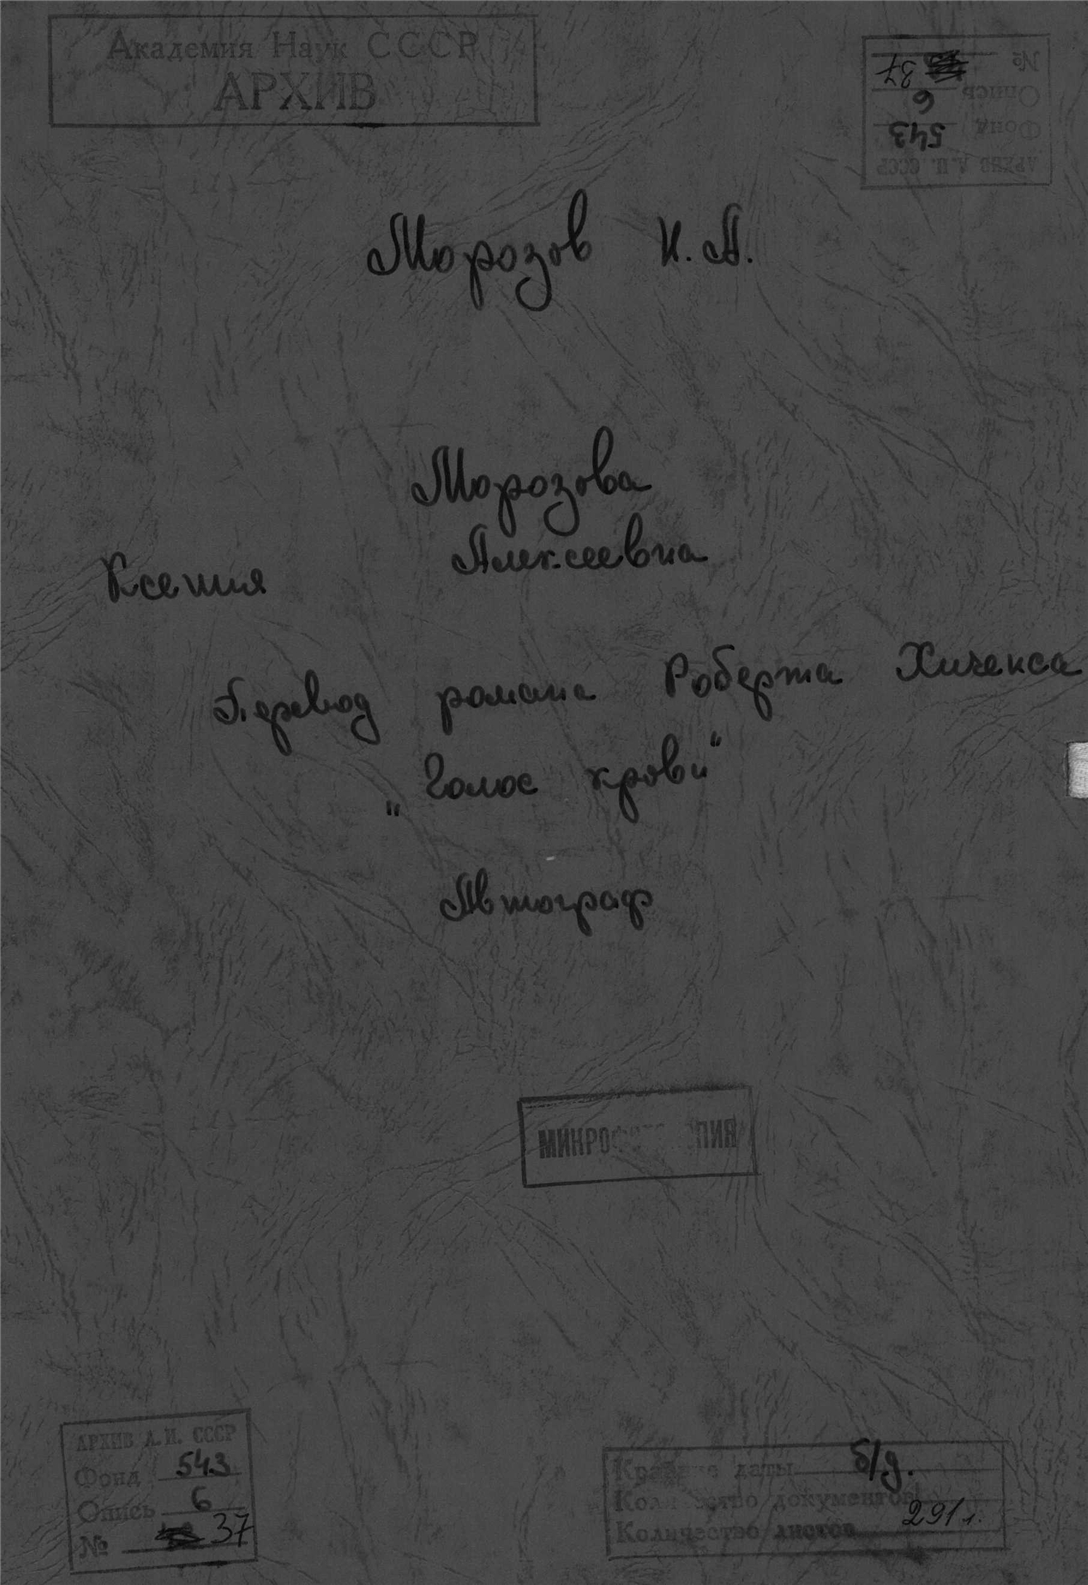 Академия Наук СССР
АРХИВ
АРХИВ А.Н. СССР
Фонд 543
Опись 6
№ 37
Морозов Н.А.
Морозова
Ксения Алексеевна
Перевод романа Роберта Хиченса
„Голос крови“
Автограф
АРХИВ А.Н. СССР
Фонд 543
Опись 6
№ 37
Крайние даты б/д.
Количество документов
Количество листов 291 л.